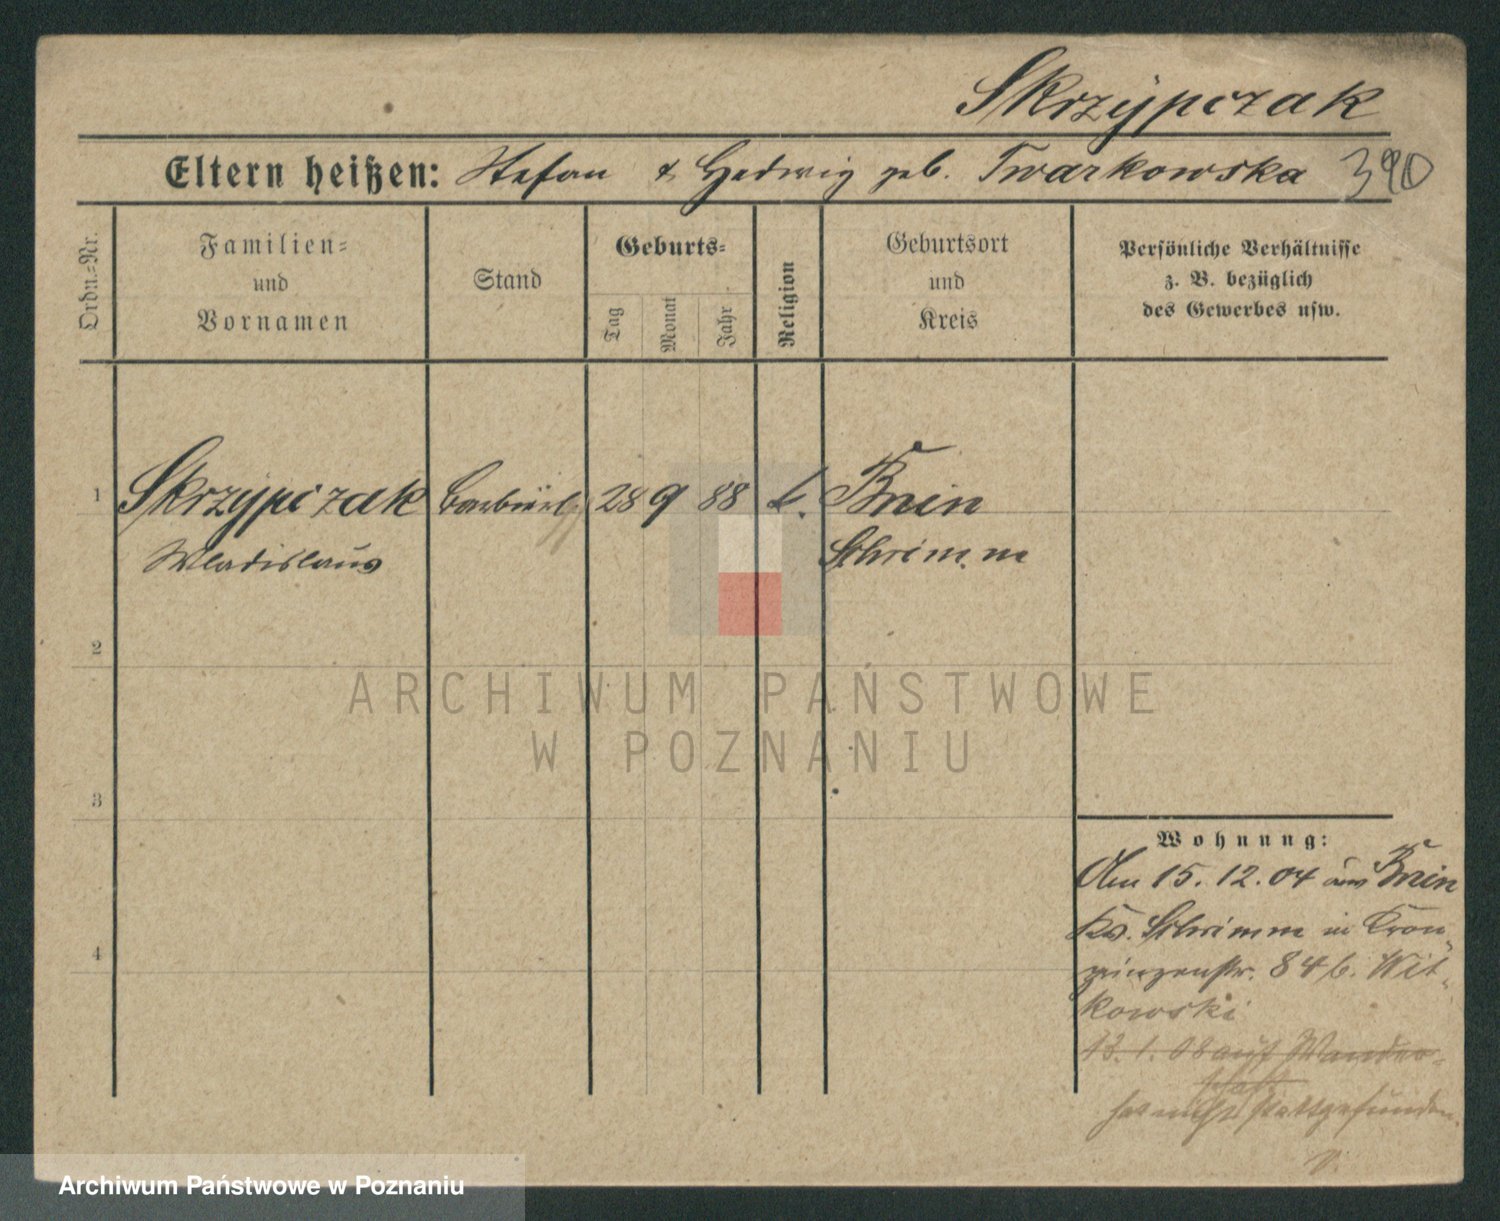 Skrzypczak
Eltern heißen: Stefan & Hedwig geb. Twarkowska 390
Ordn.-Nr.
Familien-
und
Vornamen
Stand
Geburts-
Tag
Monat
Jahr
Religion
Geburtsort
und
Kreis
Persönliche Verhältnisse
z. B. bezüglich
des Gewerbes usw.
1 Skrzypczak 28 9 88 k. Bnin
Wladislaus Schrimm
2
ARCHIWUM PAŃSTWOWE
W POZNANIU
3
Wohnung:
Am 15. 12. 04 aus Bnin
Kr. Schrimm in Kron-
prinzenstr. 84 b. Wit-
kowski
13. 1. 08 auf Wander-
schaft
hat nicht stattgefunden.
4
Archiwum Państwowe w Poznaniu